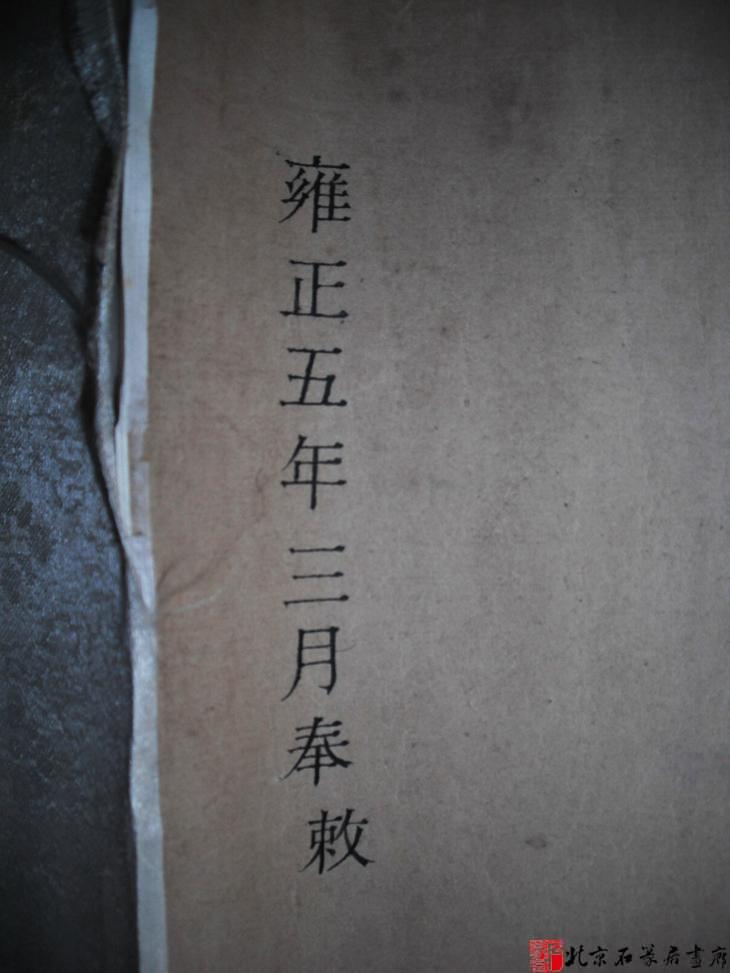 雍正五年三月奉敕
北京石篆居畫廊